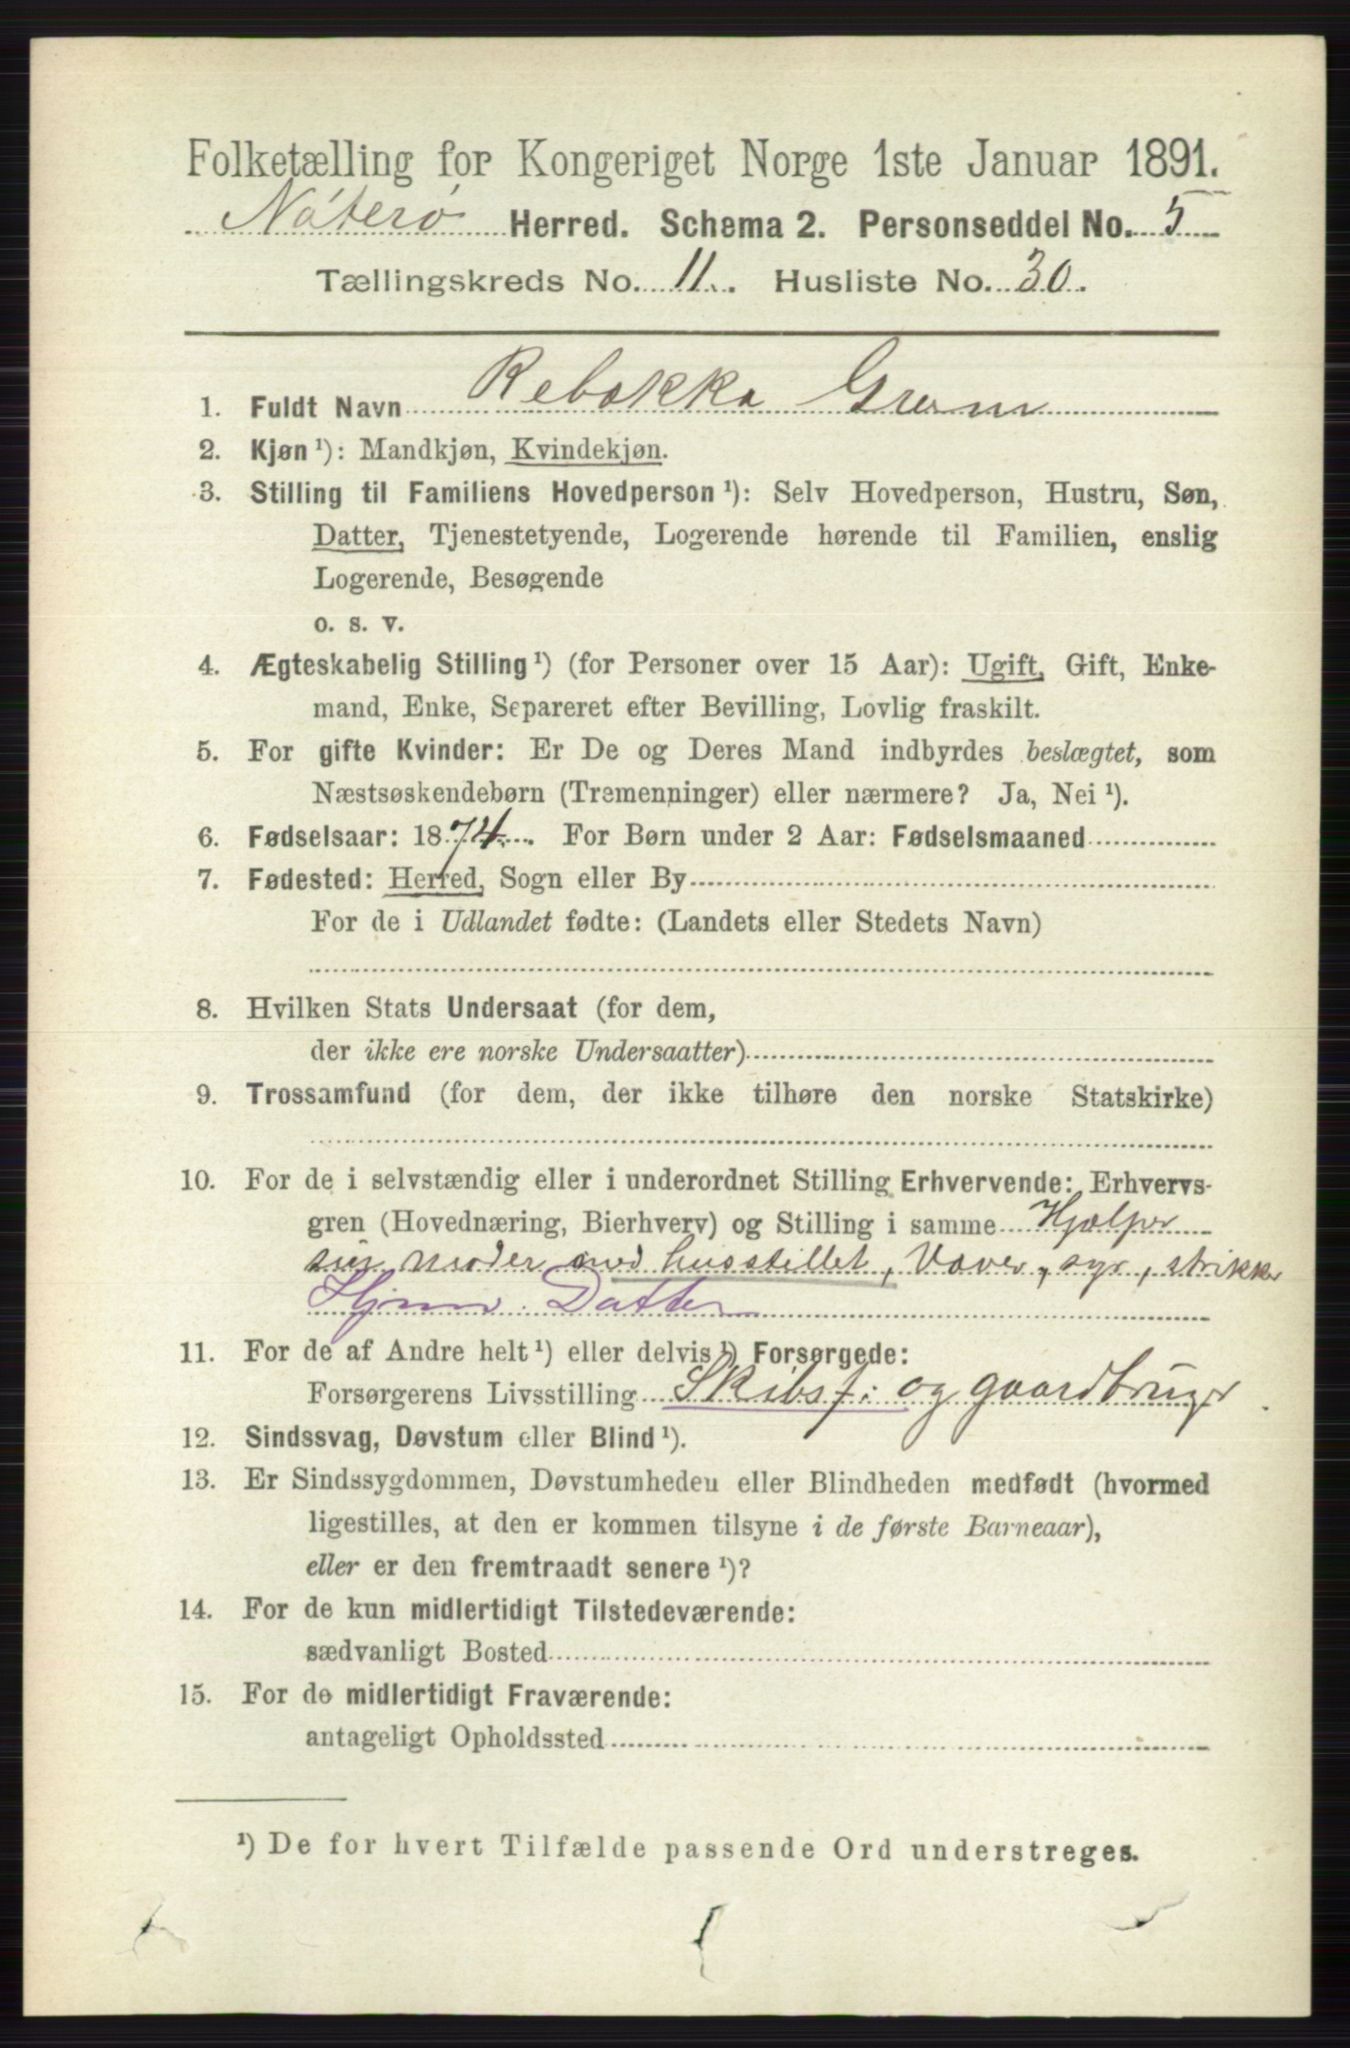 Folketælling for Kongeriget Norge 1ste Januar 1891.
Nøterø Herred. Schema 2. Personseddel No. 5
Tællingskreds No. 11. Husliste No. 30.
1. Fuldt Navn Rebekka Grøm
2. Kjøn ¹): Mandkjøn, Kvindekjøn.
3. Stilling til Familiens Hovedperson ¹): Selv Hovedperson, Hustru, Søn,
Datter, Tjenestetyende, Logerende hørende til Familien, enslig
Logerende, Besøgende
o. s. v.
4. Ægteskabelig Stilling ¹) (for Personer over 15 Aar): Ugift, Gift, Enke-
mand, Enke, Separeret efter Bevilling, Lovlig fraskilt.
5. For gifte Kvinder: Er De og Deres Mand indbyrdes beslægtet, som
Næstsøskendebørn (Tremenninger) eller nærmere? Ja, Nei ¹).
6. Fødselsaar: 1874. For Børn under 2 Aar: Fødselsmaaned
7. Fødested: Herred, Sogn eller By
For de i Udlandet fødte: (Landets eller Stedets Navn)
8. Hvilken Stats Undersaat (for dem,
der ikke ere norske Undersaatter)
9. Trossamfund (for dem, der ikke tilhøre den norske Statskirke)
10. For de i selvstændig eller i underordnet Stilling Erhvervende: Erhvervs-
gren (Hovednæring, Bierhverv) og Stilling i samme Hjælper
sin moder med husstillet, Væver, syr, strikker
Hjmv. Datter
11. For de af Andre helt ¹) eller delvis ¹) Forsørgede:
Forsørgerens Livsstilling Skibsf: og gaardbruger
12. Sindssvag, Døvstum eller Blind ¹).
13. Er Sindssygdommen, Døvstumheden eller Blindheden medfødt (hvormed
ligestilles, at den er kommen tilsyne i de første Barneaar),
eller er den fremtraadt senere ¹)?
14. For de kun midlertidigt Tilstedeværende:
sædvanligt Bosted
15. For de midlertidigt Fraværende:
antageligt Opholdssted
¹) De for hvert Tilfælde passende Ord understreges.